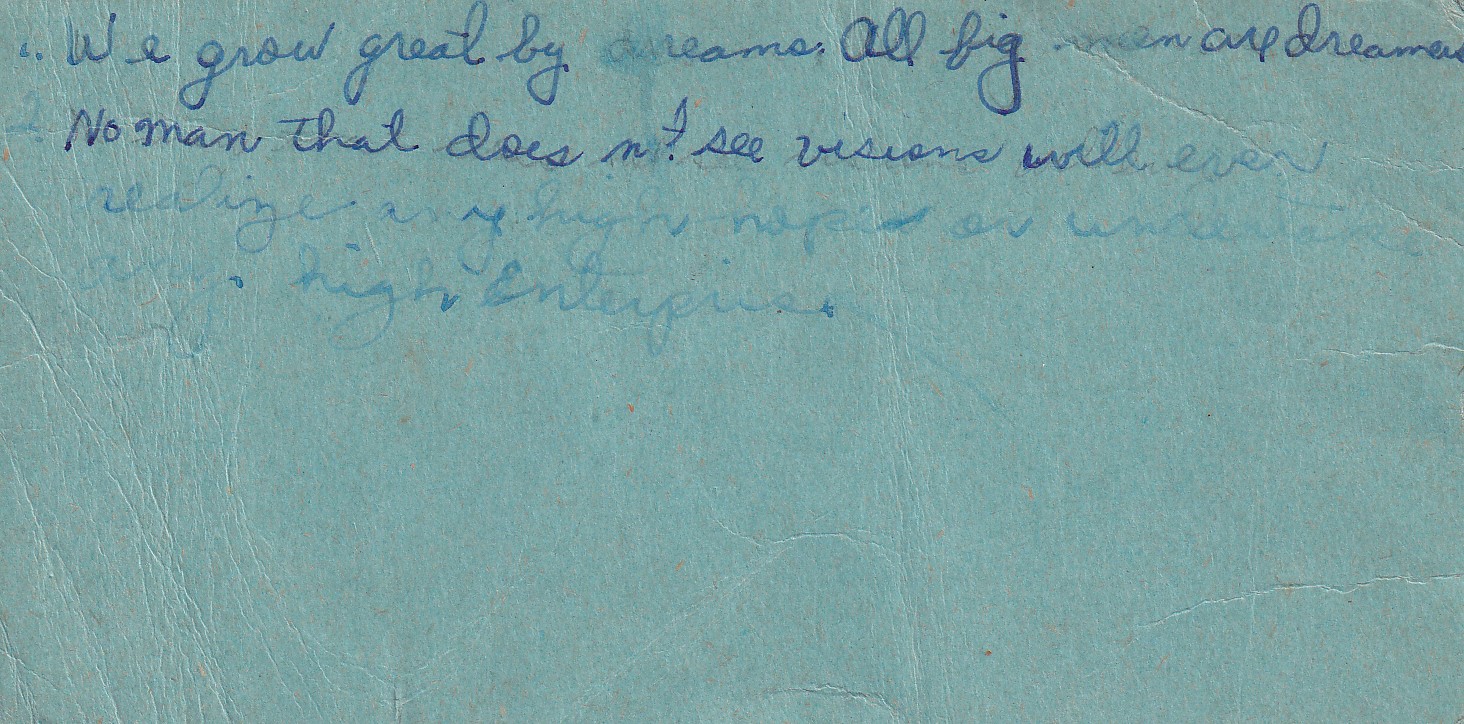 .. We grow great by dreams. All big men are dreamers
2. No man that does n't see visions will ever
realize any high hope or undertake
any. high Enterprise.